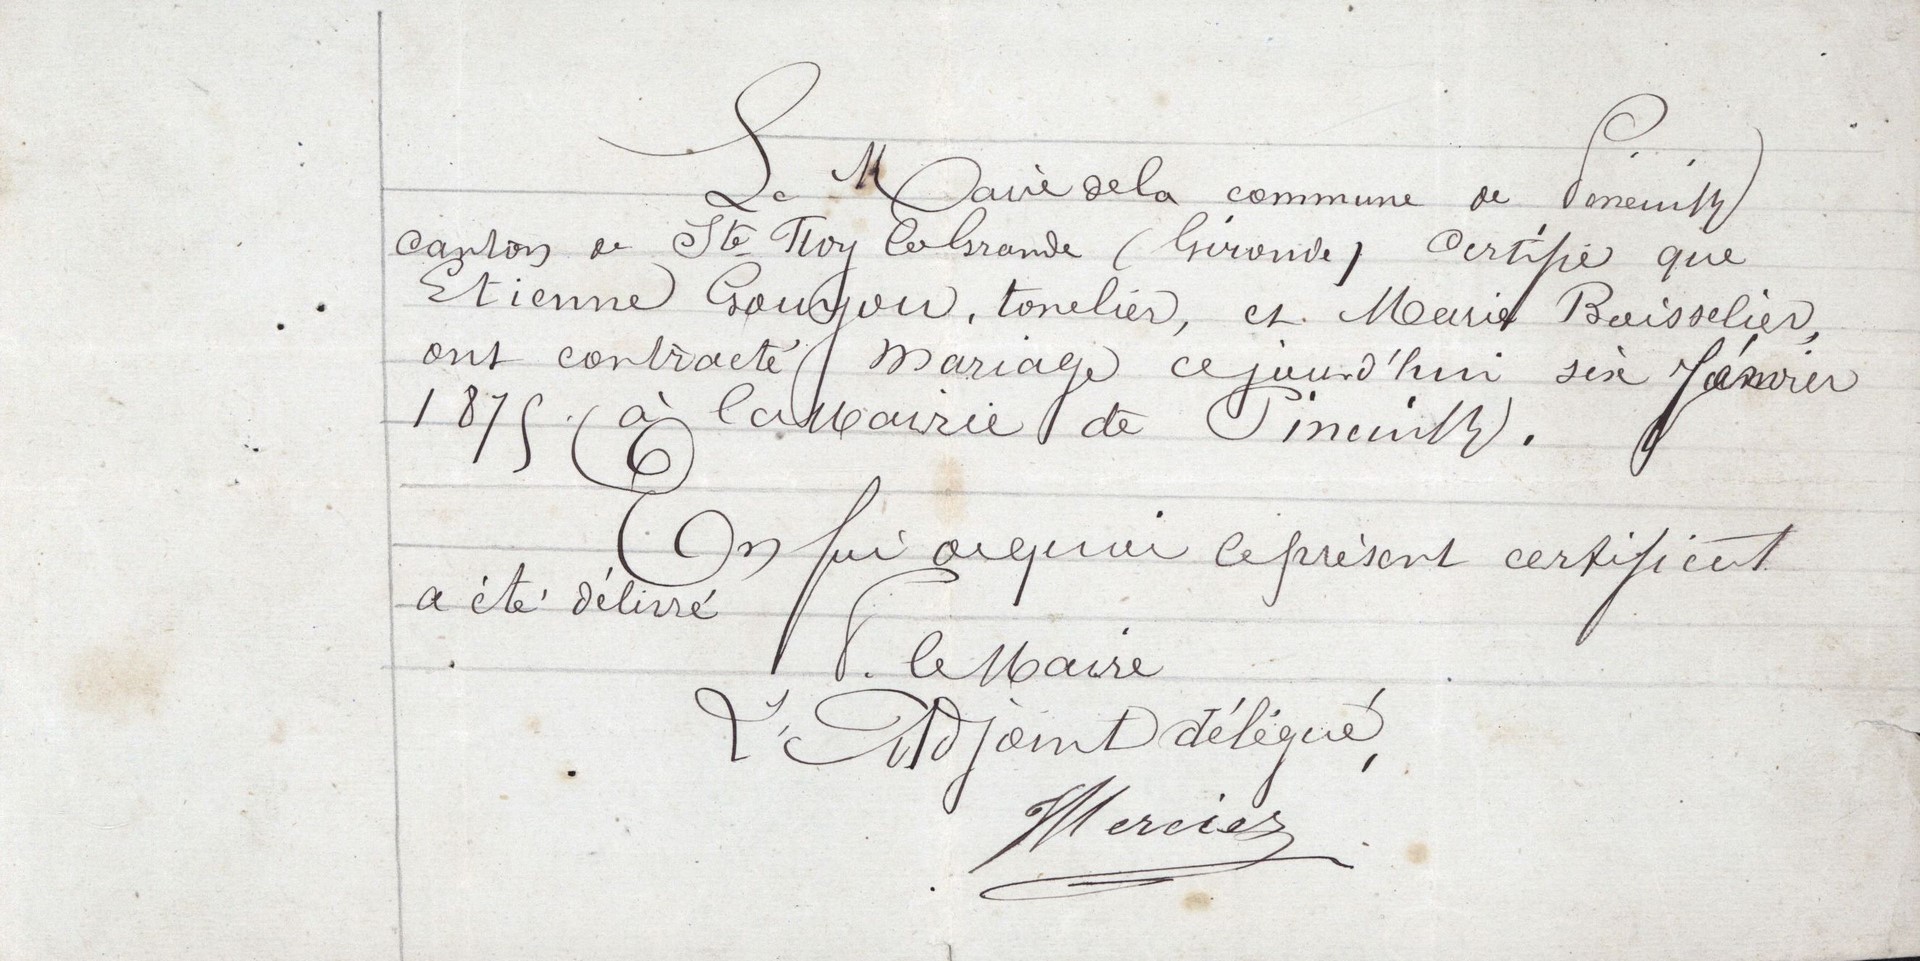 Le Maire de la commune de Pineuilh
canton de Ste Foy la Grande (Gironde) certifie que
Etienne Goujou, tonelier, et Marie Boisselier,
ont contracté mariage cejourd'hui six Janvier
1875 à la Mairie de Pineuilh.
En foi de quoi le présent certificat
a été délivré
P. le Maire
L'Adjoint délégué,
Mercier